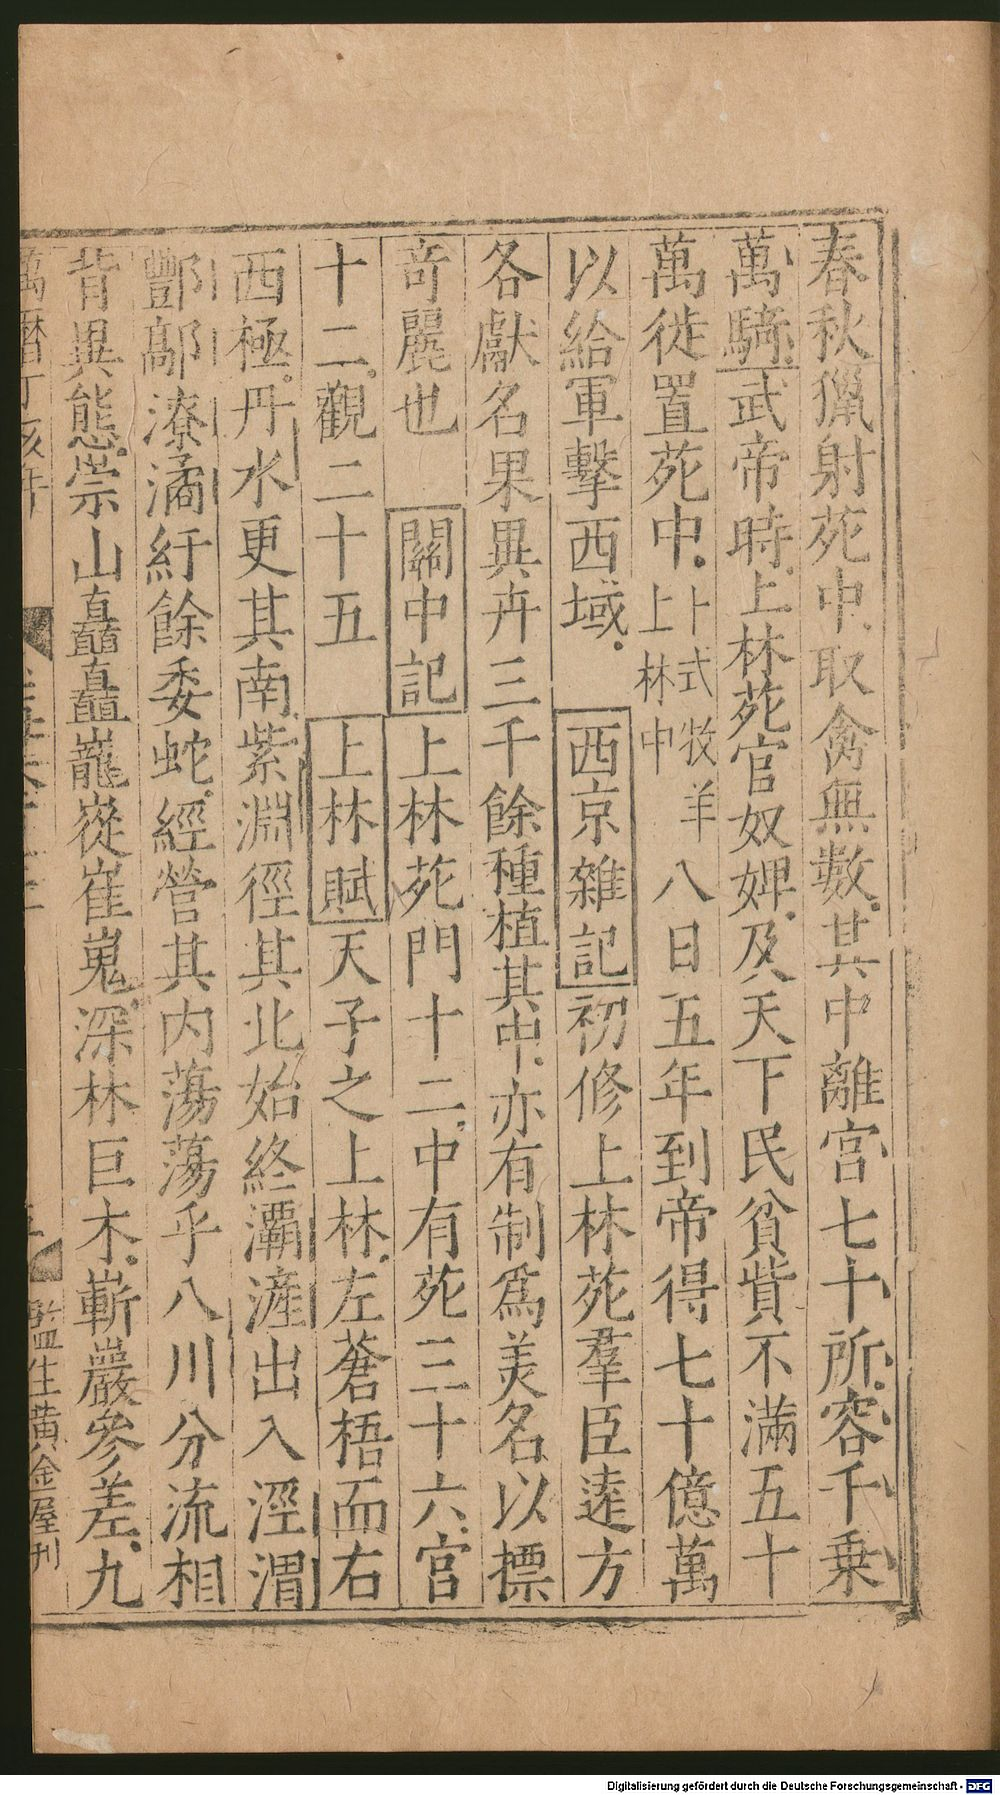 春秋獵射苑中取禽無數其中離宮七十所容千乗
萬騎武帝時上林苑官奴婢及天下民貧貲不滿五十
萬徙置苑中卜式牧羊上林中八日五年到帝得七十億萬
以給軍擊西域西京雜記初修上林苑羣臣逺方
各獻名果異卉三千餘種植其中亦有制爲美名以摽
竒麗也關中記上林苑門十二中有苑三十六宫
十二觀二十五上林賦天子之上林左蒼梧而右
西極丹水更其南紫淵徑其北始終灞滻出入涇渭
酆鄗潦潏紆餘委蛇經營其内蕩蕩乎八川分流相
背異態崇山矗矗巃嵸崔嵬深林巨木嶄巖參差九
萬曆丁亥年
監生黄金屋刋
Digitalisierung gefördert durch die Deutsche Forschungsgemeinschaft - DFG